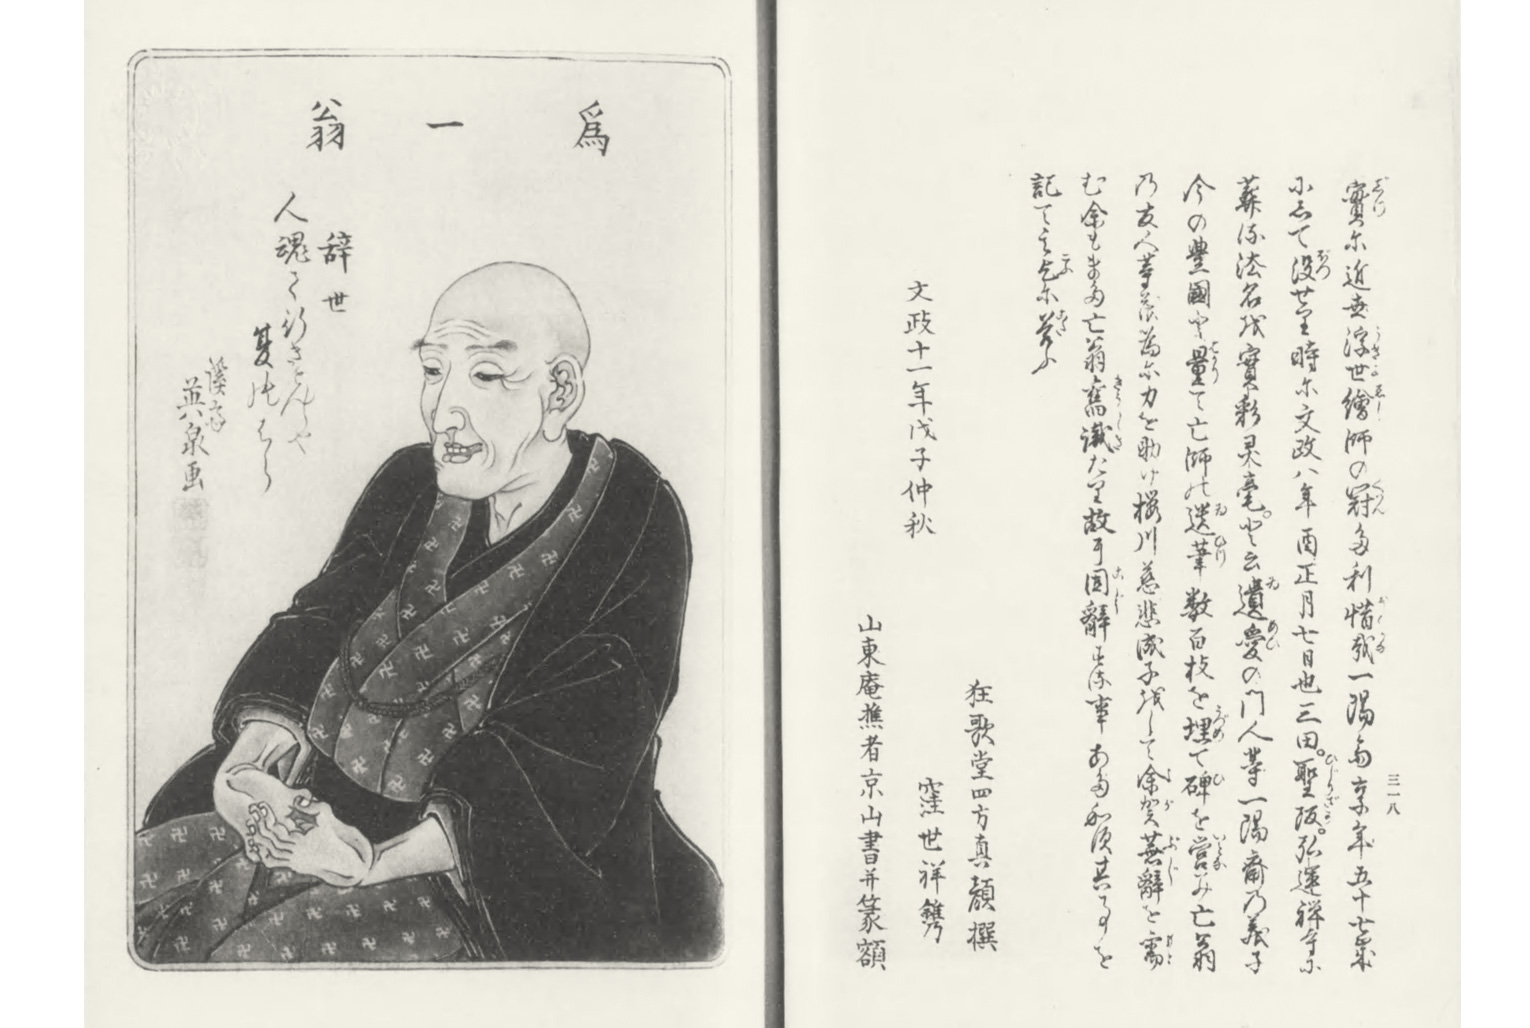 三一八
實尓近世浮世繪師の冠多利惜哉一陽齋享年五十七歳
尓志て没せり時尓文政八年酉正月七日也三田。聖坂。弘運禅寺に
葬流法名波實彩灵毫。と云遺愛の門人等一陽齋乃義子
今の豊國と量て亡師能遺筆数百枚を埋て碑を営み亡翁
乃友人等農為尓力を助け桜川慈悲成子をして余が蕪辭を需
む余もまた亡翁舊識たり故耳固辭する事あたわ須其事を
記して乞尓答ふ
狂歌堂四方真顔撰
文政十一年戊子仲秋
窪世祥鐫
山東庵樵者京山書并篆額
爲一翁
辞世
人魂て行きさんじや
夏能はら
溪斎
英泉画